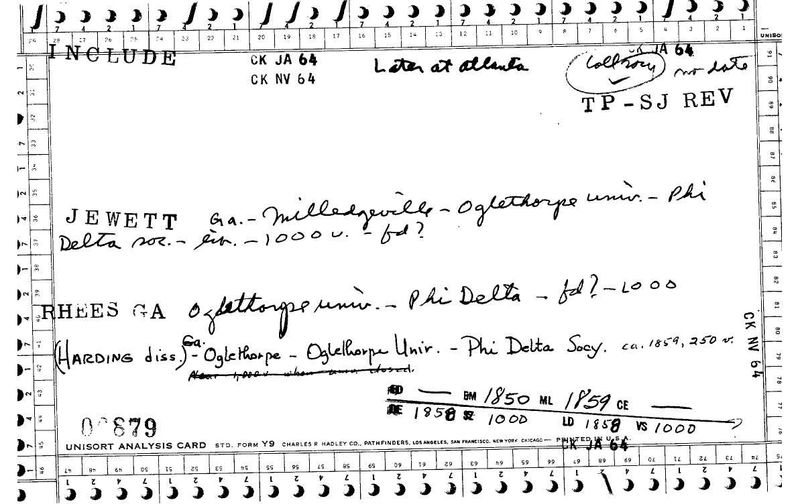 INCLUDE
CK JA 64
CK NV 64
Later at atlanta
JA 64
no date
TP-SJ REV
JEWETT Ga. - Milledgeville - Oglethorpe univ. - Phi
Delta soc. - 1000 v. - fd?
RHEES GA Oglethorpe univ. - Phi Delta - fd? - 1000
(HARDING diss.) Ga. - Oglethorpe - Oglethorpe Univ. - Phi Delta Socy. ca. 1859, 250 v.
CK NV 64
— BM 1850 ML 1859 CE —
1858 1000 LD 1858 VS 1000
879
UNISORT ANALYSIS CARD STD. FORM Y9 CHARLES R HADLEY CO., PATHFINDERS, LOS ANGELES, SAN FRANCISCO, NEW YORK, CHICAGO — PRINTED IN U.S.A.
CK JA 64